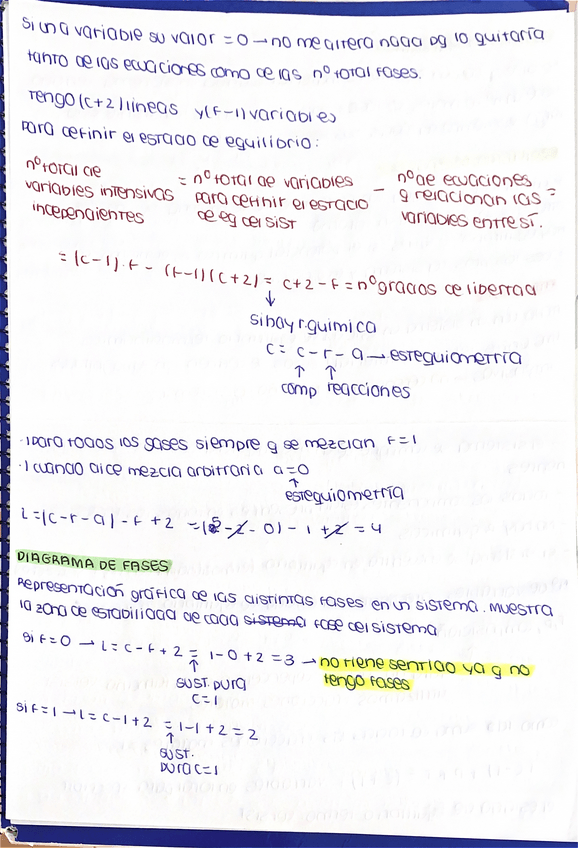 si una variable su valor = 0 → no me altera nada pq lo quitaría
tanto de las ecuaciones como de las nº total fases.
Tengo (c+2) líneas y (F-1) variables
Para definir el estado de equilibrio:
nº total de variables intensivas independientes = nº total de variables para definir el estado de eq del sist - nº de ecuaciones q relacionan las variables entre sí. =
= (c-1)·F - (F-1)(c+2) = c+2-F = nº grados de libertad
↓
si hay r. química
c = c - r - a → estequiometría
↑ ↑
comp reacciones
·| para todos los gases siempre q se mezclan F=1
·| cuando dice mezcla arbitraria a=0
↑
estequiometría
L = (c-r-a) - F + 2 = (5-2-0) - 1 + 2 = 4
DIAGRAMA DE FASES
Representación gráfica de las distintas fases en un sistema. Muestra
la zona de estabilidad de cada sistema fase del sistema
si F=0 → L = c-F+2 = 1-0+2 = 3 → no tiene sentido ya q no
tengo fases
↑
sust. pura
c=1
si F=1 → L = c-1+2 = 1-1+2 = 2
↑
sust.
pura c=1